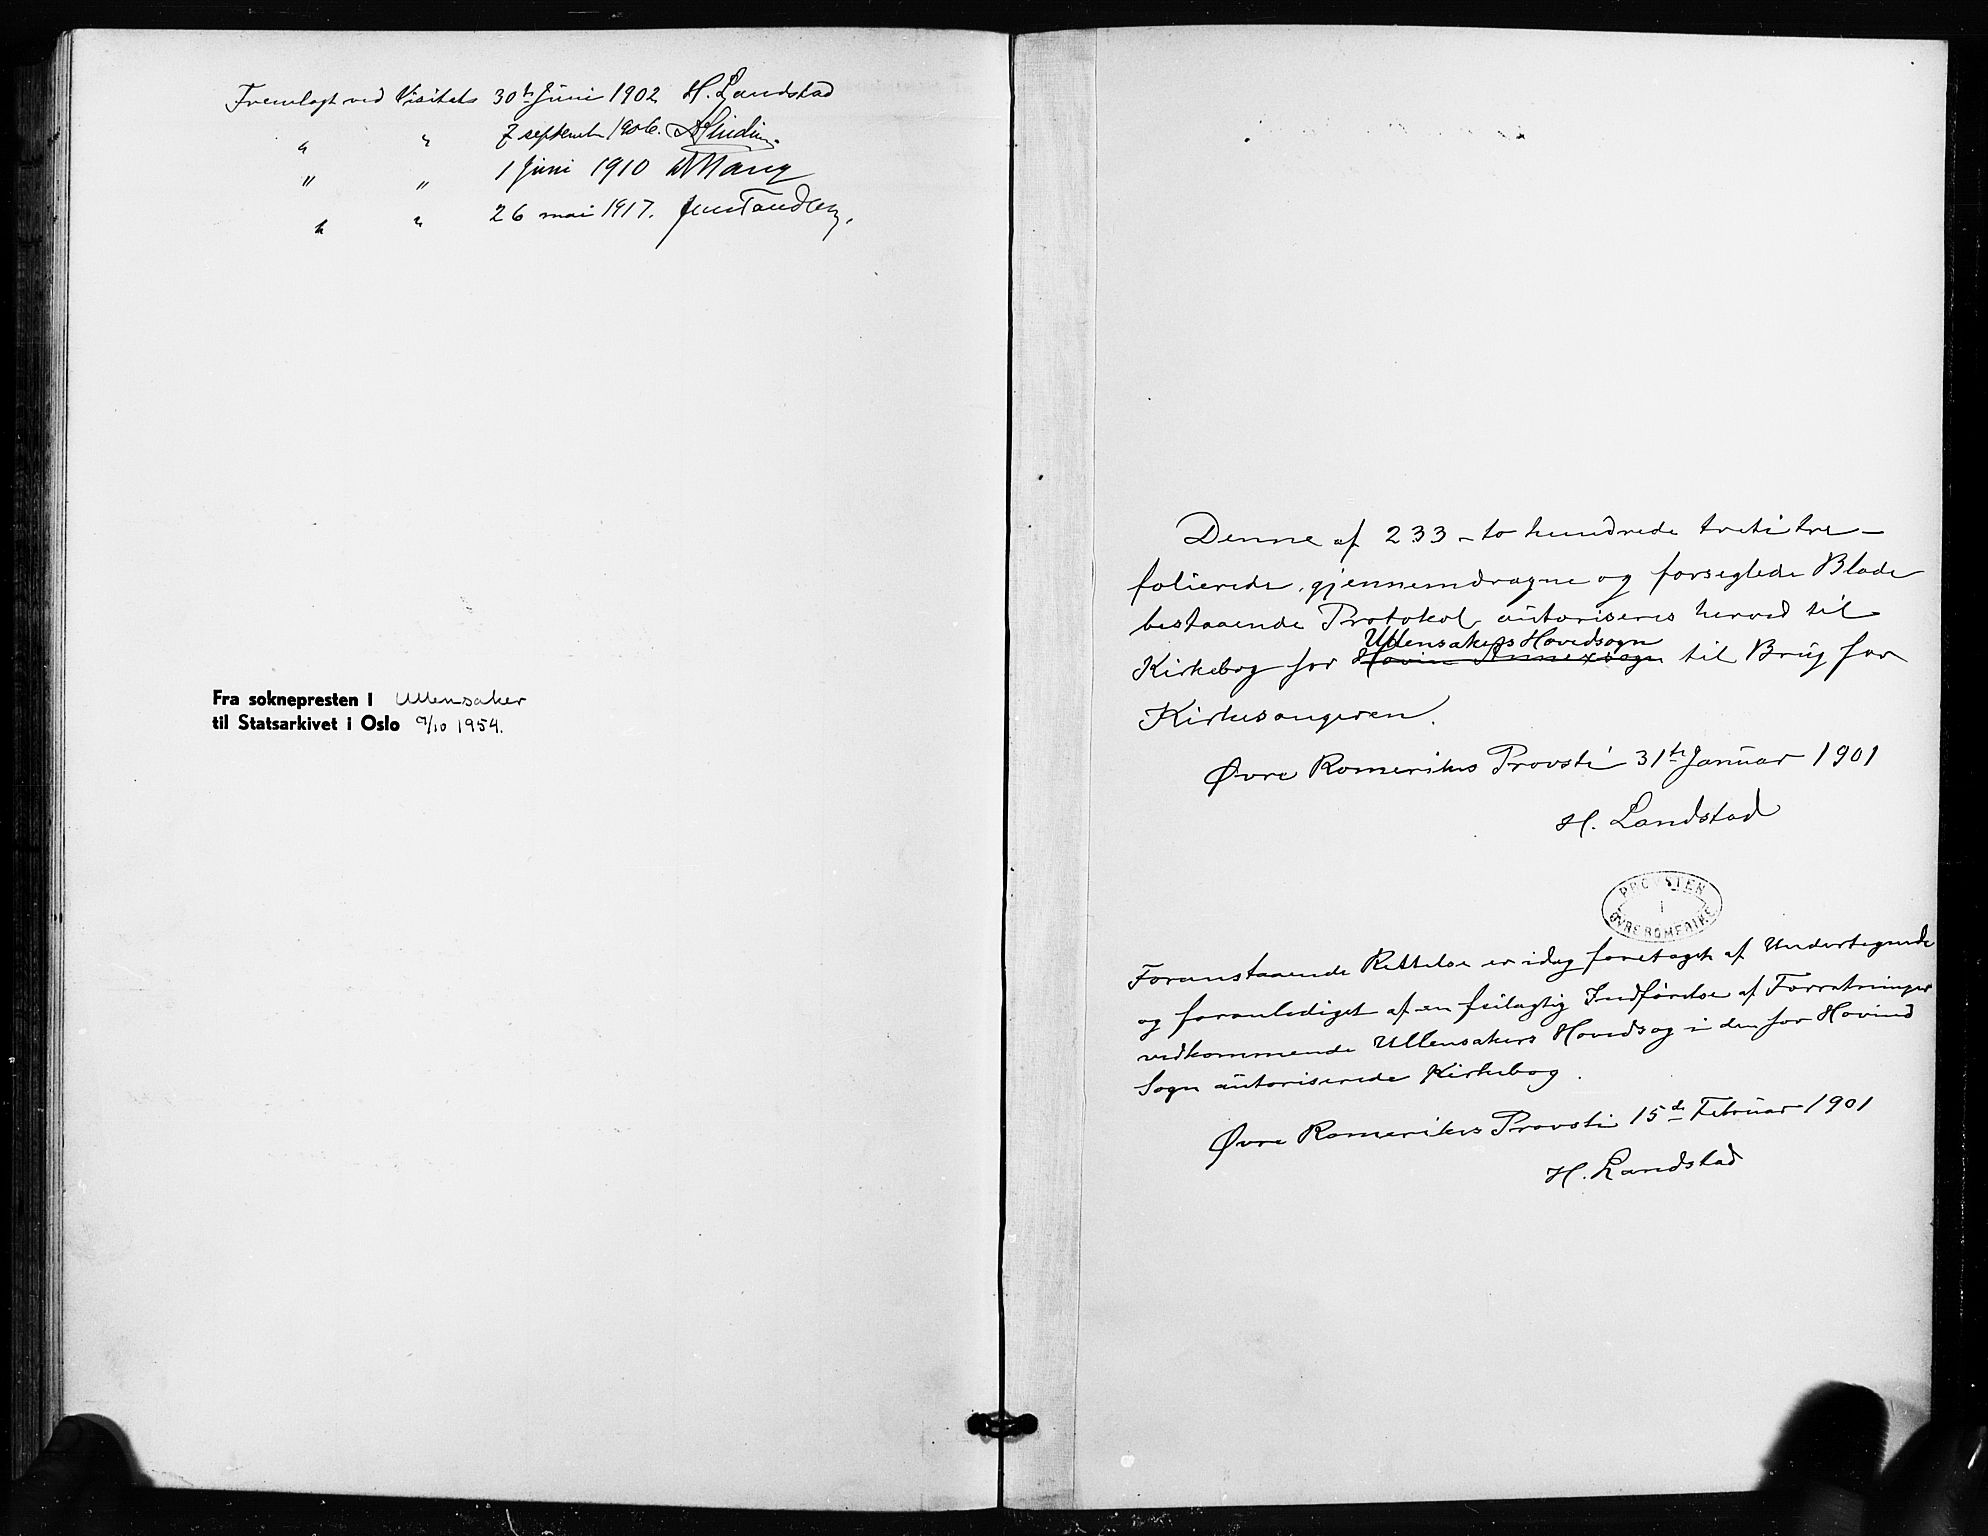 Fremlagt ved Visitats 30te Juni 1902 H. Landstad
" " 7 september 1906. A Sinding.
" " 1 Juni 1910
" " 26 mai 1917. Jens Tandberg.
Fra soknepresten i Ullensaker
til Statsarkivet i Oslo 9/10 1954.
Denne af 233 - to hundrede treti tre -
folierede, gjennemdragne og forseglede Blade
bestaaende Protokol autoriseres herved til
Ullensakers Hovedsogn
Kirkebog for Hovin Annexsogn til Brug for
Kirkesangeren.
Øvre Romerikes Provsti 31te Januar 1901
H. Landstad
PROVSTEN
I
ØVRE ROMERIKE
Foranstaaende Rettelse er idag foretaget af Undertegnede
og foranlediget af en feilagtig Indførelse af Forretninger
vedkommende Ullensakers Hovedsog i den for Hovind
Sogn autoriserede Kirkebog.
Øvre Romerikes Provsti 15de Februar 1901
H. Landstad